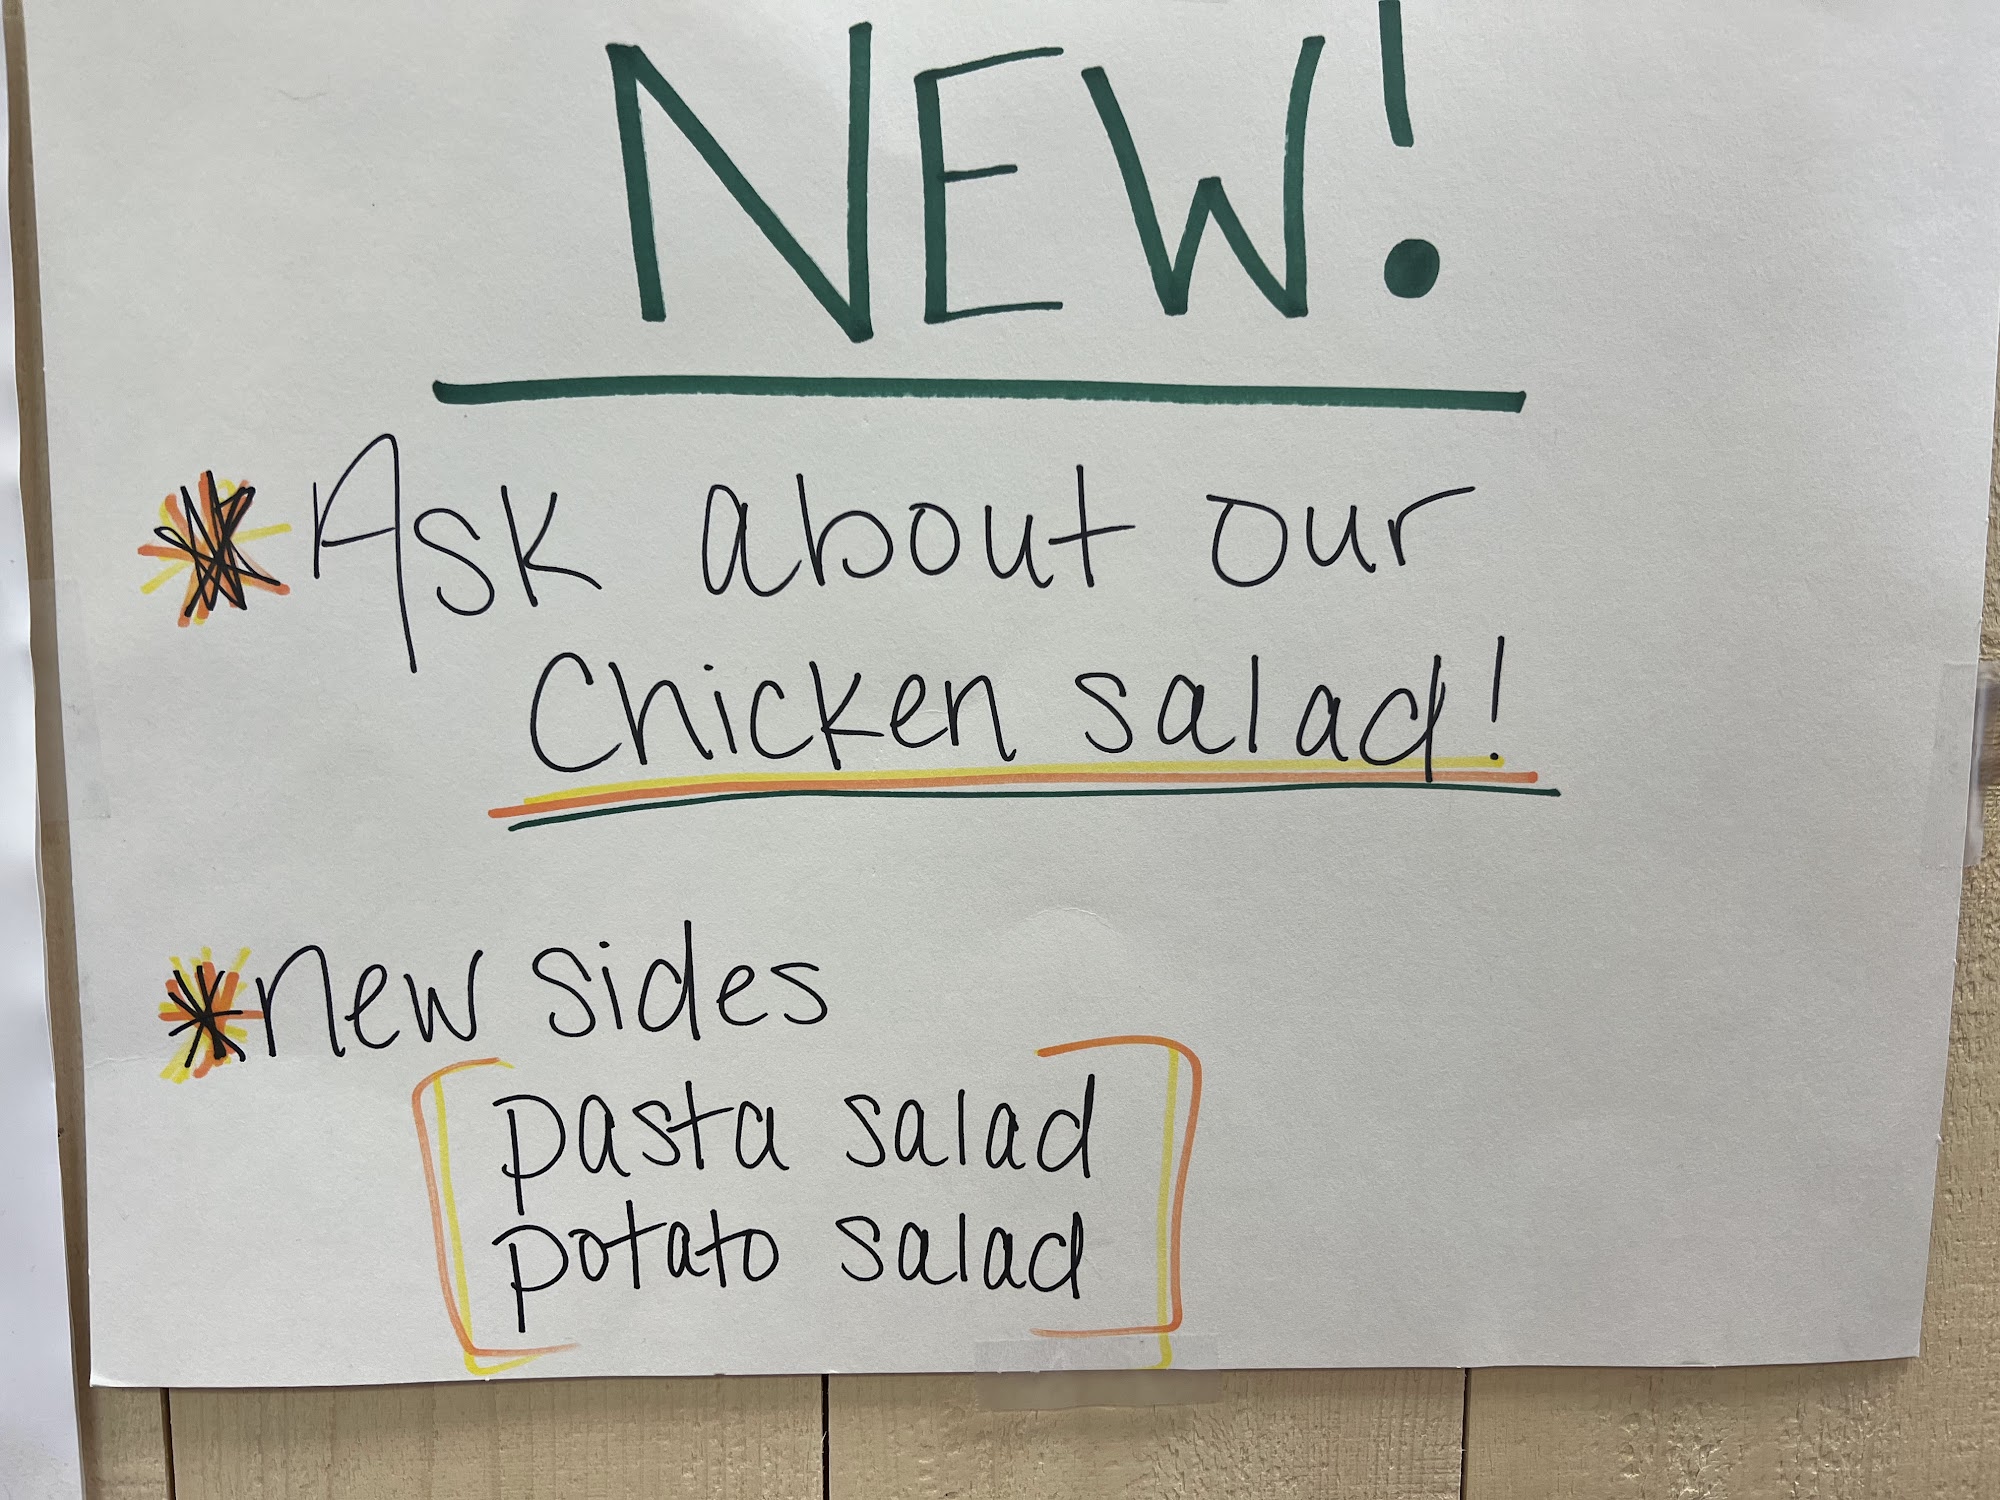 NEW!
*Ask about our
Chicken salad!
*new sides
pasta salad
potato salad